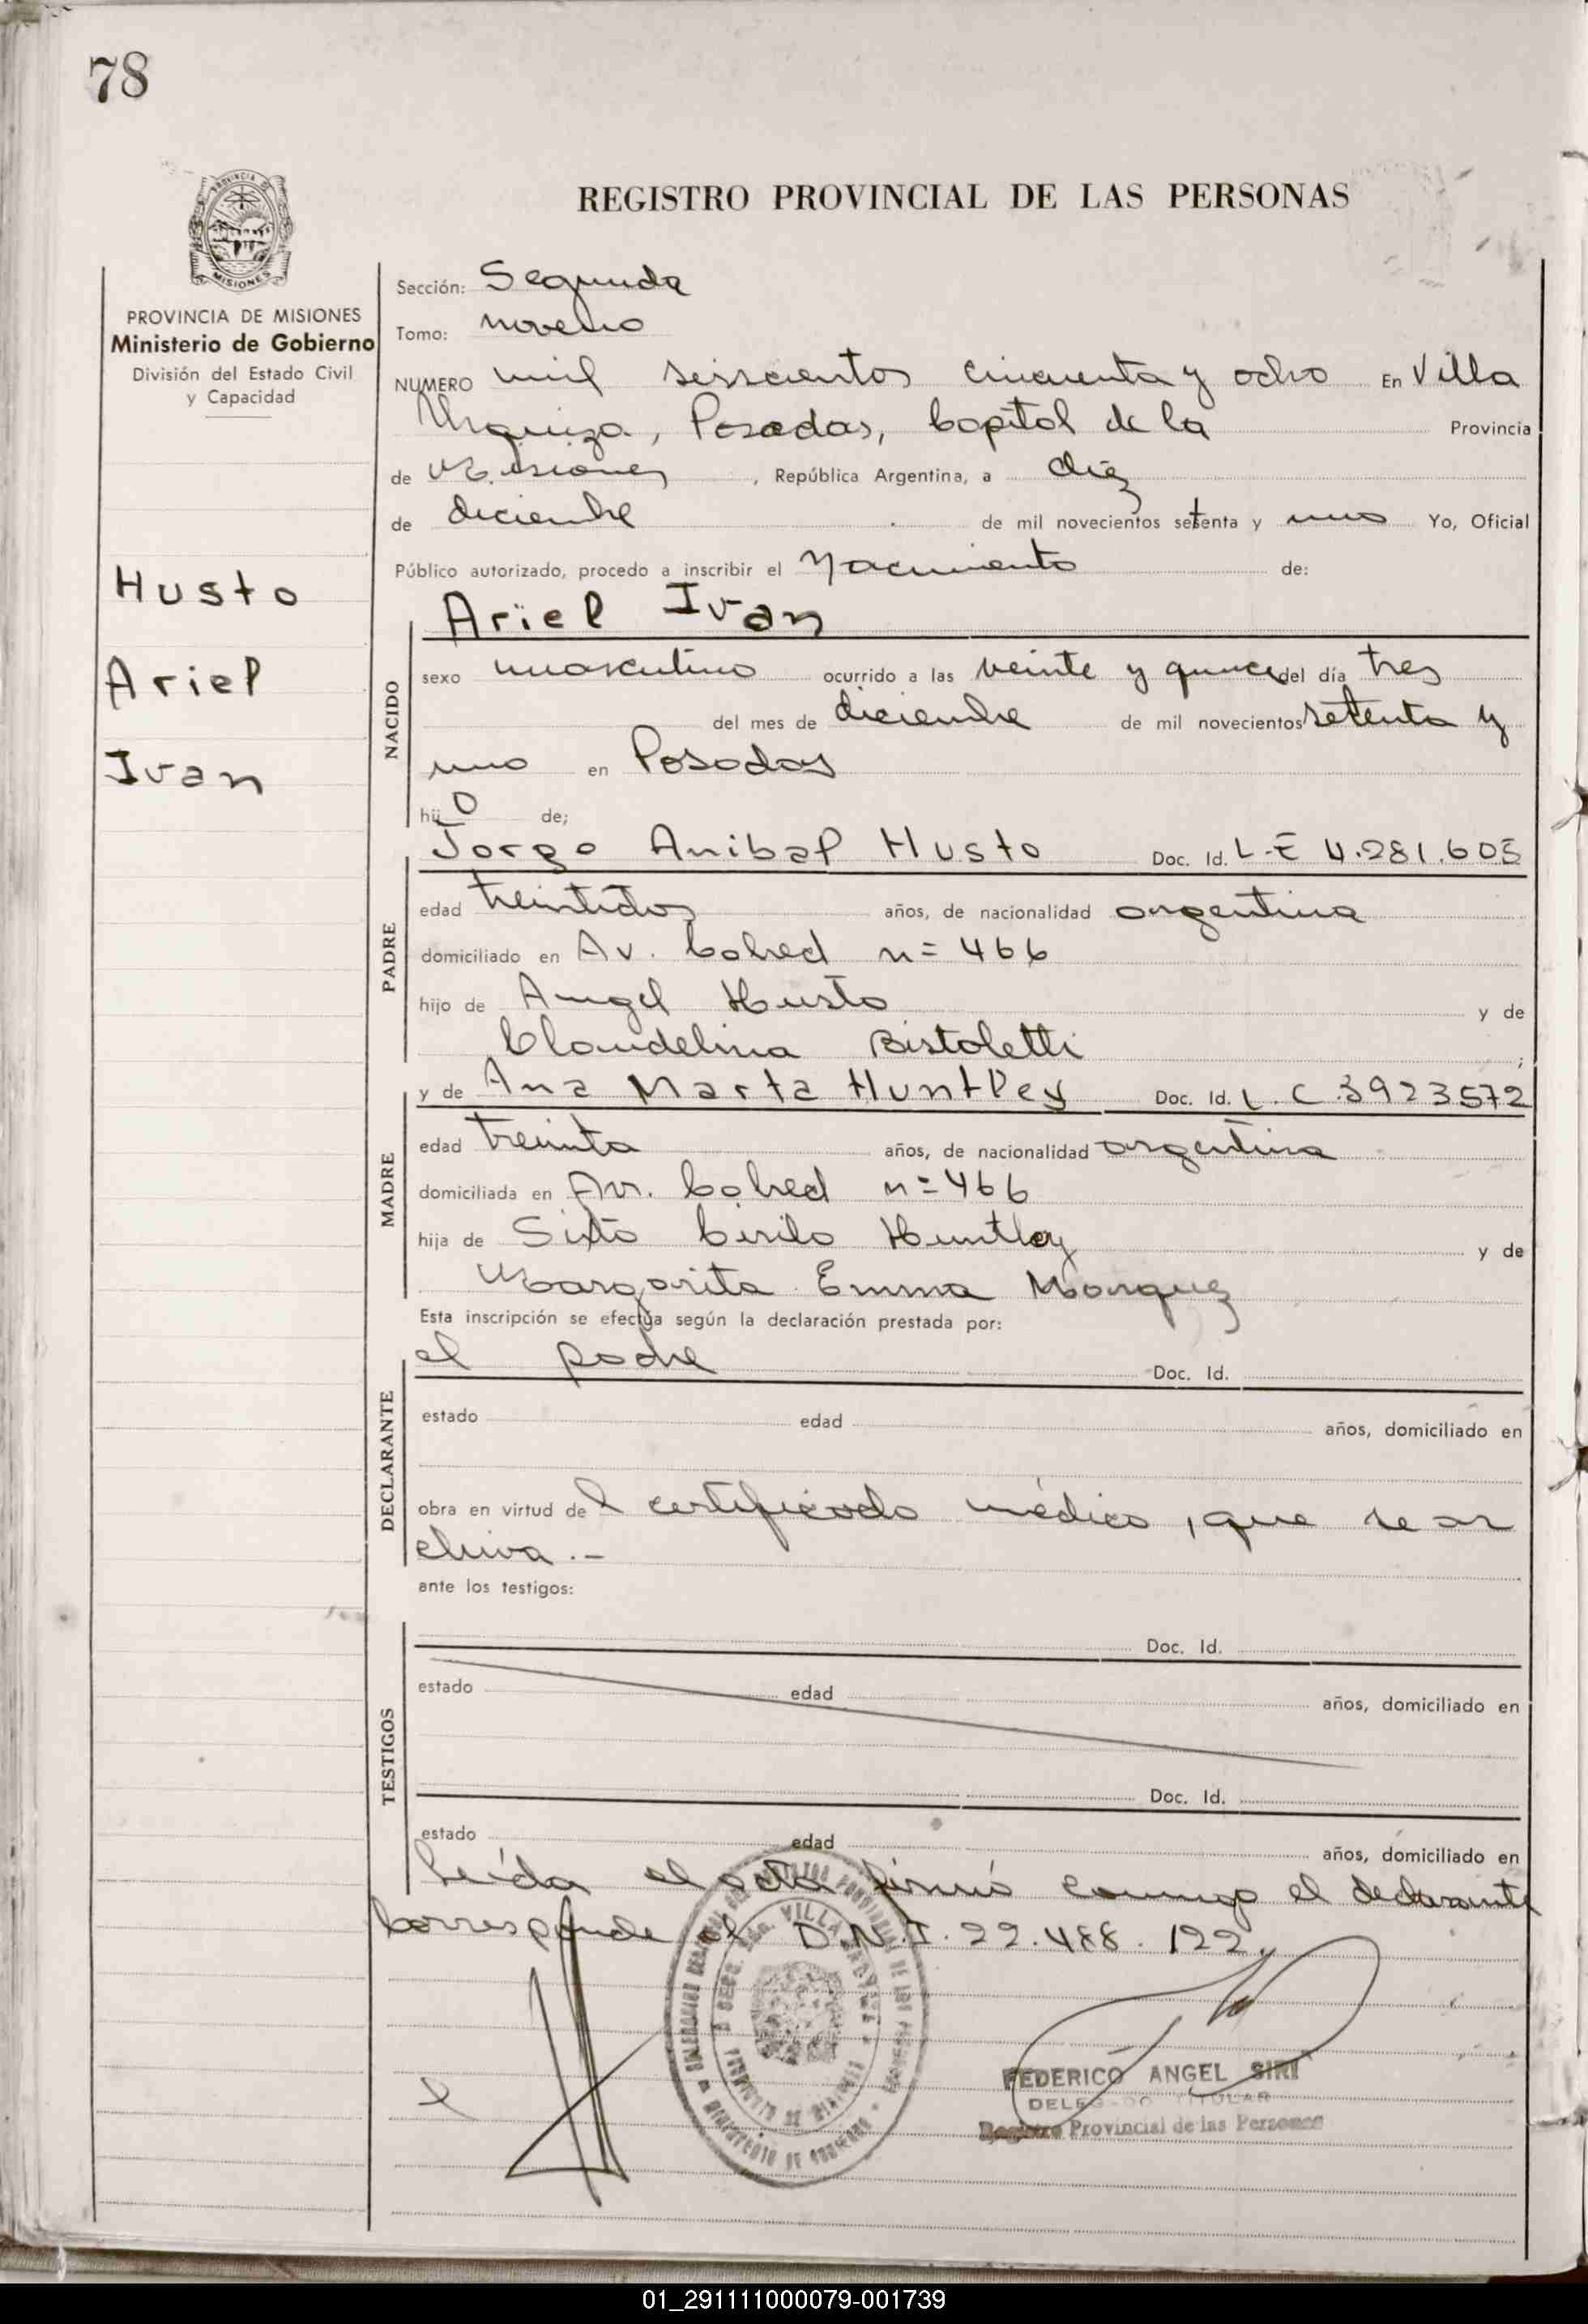 78
REGISTRO PROVINCIAL DE LAS PERSONAS
PROVINCIA DE MISIONES
Ministerio de Gobierno
División del Estado Civil
y Capacidad
Husto
Ariel
Ivan
Sección: Segunda
Tomo: noveno
NUMERO mil seiscientos cincuenta y ocho En Villa
Urquiza, Posadas, Capital de la Provincia
de Misiones, República Argentina, a diez
de diciembre de mil novecientos setenta y uno Yo, Oficial
Público autorizado, procedo a inscribir el Nacimiento de:
Ariel Ivan
NACIDO
sexo masculino ocurrido a las veinte y quince del día tres
del mes de diciembre de mil novecientos setenta y
uno en Posadas
hijo de;
PADRE
Jorge Anibal Husto Doc. Id. L.E 4.281.605
edad treintidos años, de nacionalidad argentina
domiciliado en Av. Cabred n= 466
hijo de Angel Husto y de
Claudelina Bistoletti ;
MADRE
y de Ana Marta Huntley Doc. Id. L.C.3923572
edad treinta años, de nacionalidad argentina
domiciliada en Av. Cabred n=466
hija de Sixto Cirilo Huntley y de
Margarita Emma Marquez
Esta inscripción se efectúa según la declaración prestada por:
DECLARANTE
el padre Doc. Id.
estado edad años, domiciliado en
obra en virtud del certificado médico, que se ar
chiva.-
ante los testigos:
TESTIGOS
Doc. Id.
estado edad años, domiciliado en
Doc. Id.
estado edad años, domiciliado en
Leída el acta firmó conmigo el declarante
Corresponde al D.N.I. 22.488.122.
FEDERICO ANGEL SIRI
DELEGADO TITULAR
Registro Provincial de las Personas
01_291111000079-001739